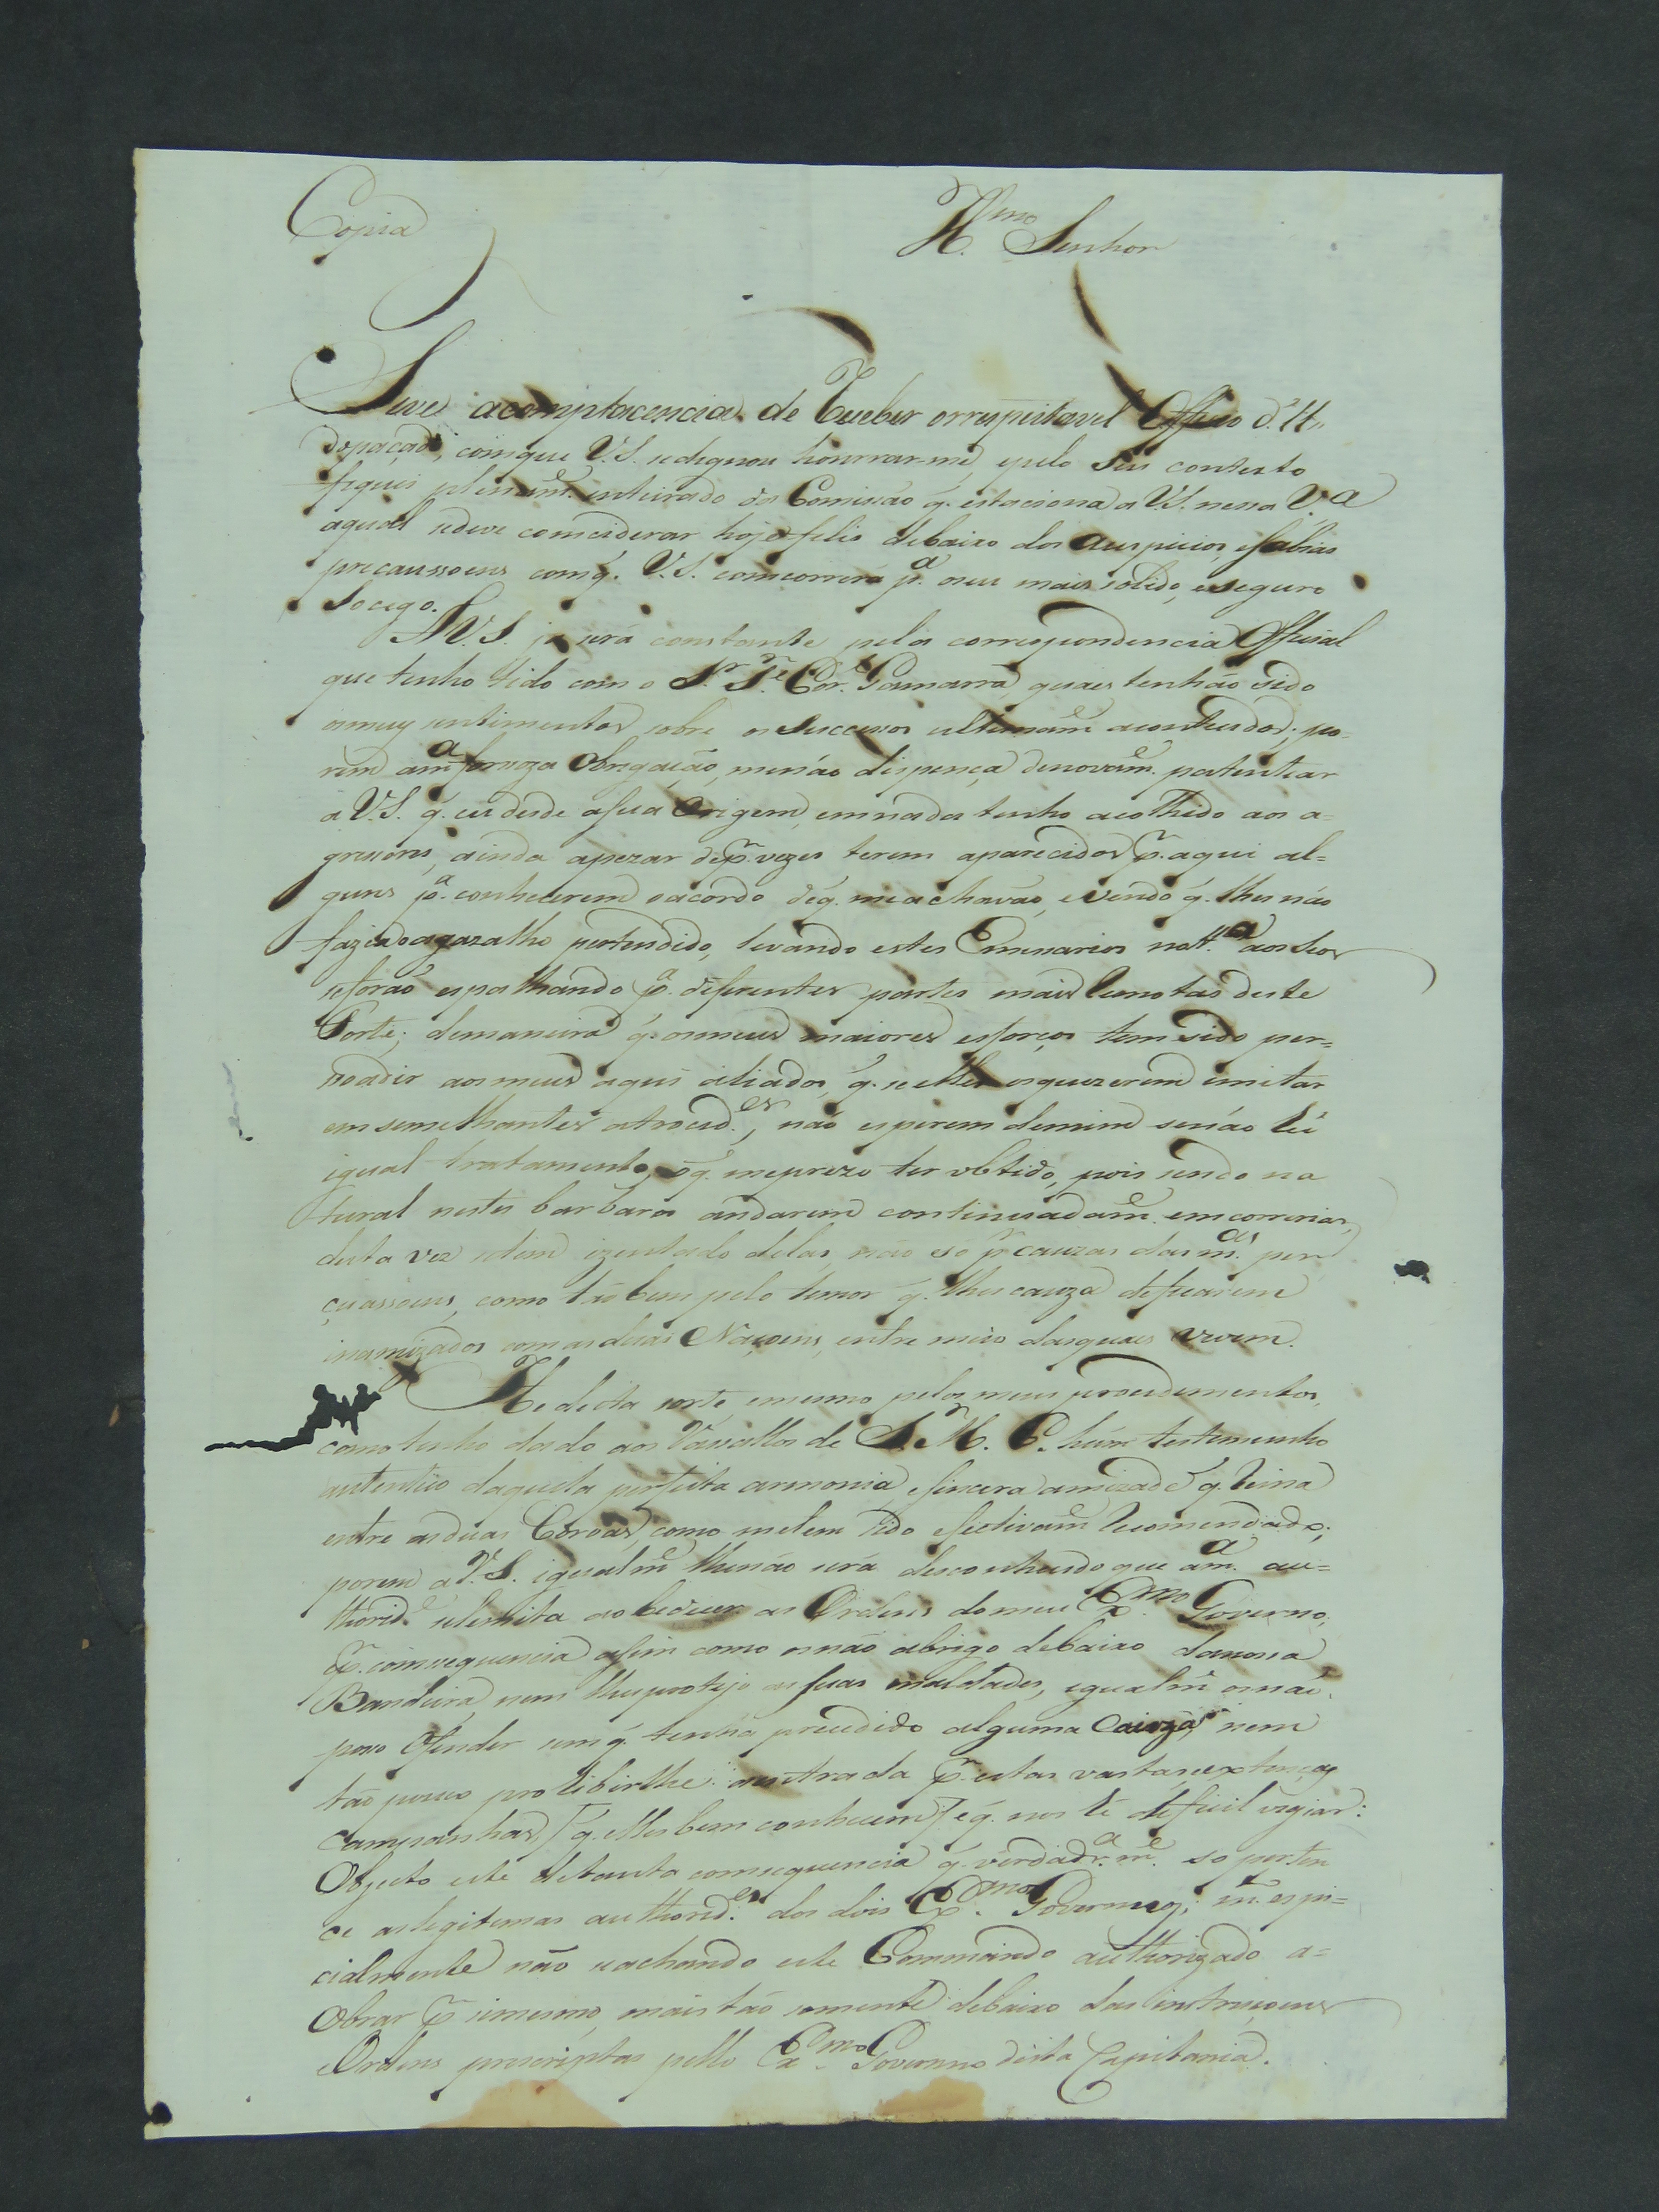 Copia
Ill.mo Senhor
Tive acomplacencia de Receber orrespeitavel Officio d'II
do paçado, comque V.S. sedignou honrrar-me, epelo seu contexto
fiquei plenam.e inteirado da Comissão q. estaciona a V.S. nessa V.a
aqual sedeve comciderar hoje feliz debaixo dos Auspicios, esabias
precaussoens comq. V.S. comcorrerá p.a oseu mais solido, eseguro
Socego.
A V.S. já será constante pela correspondencia Official
que tenho tido com o S.r T.e Cor.el Gamarra quaes tenhão sido
os meus sentimentos sobre os Successos ultimam.e acontecidos; po-
rem am.a forsoza Obrigação, menão dispença denovam.e patentiar
a V.S. q. eu desde asua Origem, em nada tenho acolhido aos a=
gressores, ainda apezar de p.r vezes terem aparecidos p.r aqui al=
guns p.a conhecerem oacordo déq. meachavão, evendo q. lhes não
fazia oagazalho pertendido, levando estes Emissarios nott.a aos seos
seforão espalhando p.a diferentes partes mais Remotas deste
Forte; demaneira q. osmeus maiores esforços tem sido per=
suadir aosmeus aqui aliados, q. se elles osquizerem imitar
em semelhantes atrocid.es, não esperem demim senão hú
igual tratamento, oq. meprezo ter obtido, pois sendo na
tural nestes barbaros andarem continuadam.e emcorrerias,
desta vez setem izentado delas, não só p.r cauzas das m.as per
çuassoens, como tão bem pelo temor q. lhes cauza deficarem
inamizados com as duas Naçoens, entre meio dasquaes vivem.
He desta sorte, emesmo pelos meus procedimentos,
como tenho dado aos Vassallos de S. M. C. húm testemunho
autentico daquela perfeita armonia, esincera amizade q. Reina
entre as duas Coroas, como metem sido efectivam.e Recomendado;
porem a V.S. igualm.e lhenão será desconhecido que am.a au=
thorid.e selemita aobedecer as Ordens domeu Ex.mo Governo;
p.r comsequencia asim como osnão abrigo debaixo danossa
Bandeira, nem lhes protejo as suas maldades, igualm.e osnão
posso Ofender sem q. tenha precedido alguma Cauza, nem
tão pouco prohibirlhe aentrada p.r estas vastas, eextenças
Campanhas, (q. elles bem conhecem) eq. nos hé deficil vigiar:
Objecto este detanta comsequencia q. verdadr.am.e so perten
ce aslegitimas authorid.es dos dois Ex.mos Governos; m.to espi=
cialmente não seachando este Commando authorizado a=
Obrar p.r simesmo, mais tão somente debaixo das instruçoens
eOrdens prescriptas pello Ex.mo Governo desta Capitania.